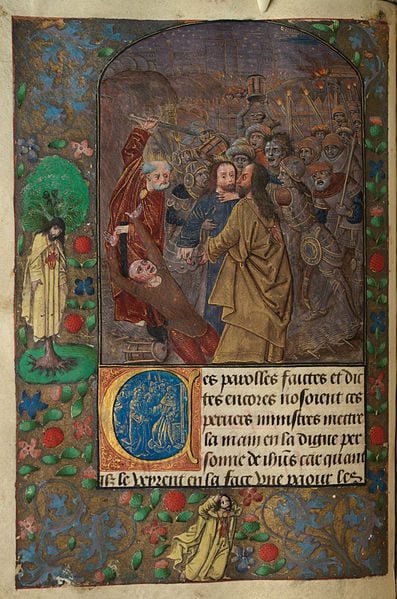 Ces parolles faittes et dic
tes encores nosoient ces
peruers ministres mettre
la main en la digne per
sonne de ihus car quant
ilz le virent en la face vne paour les